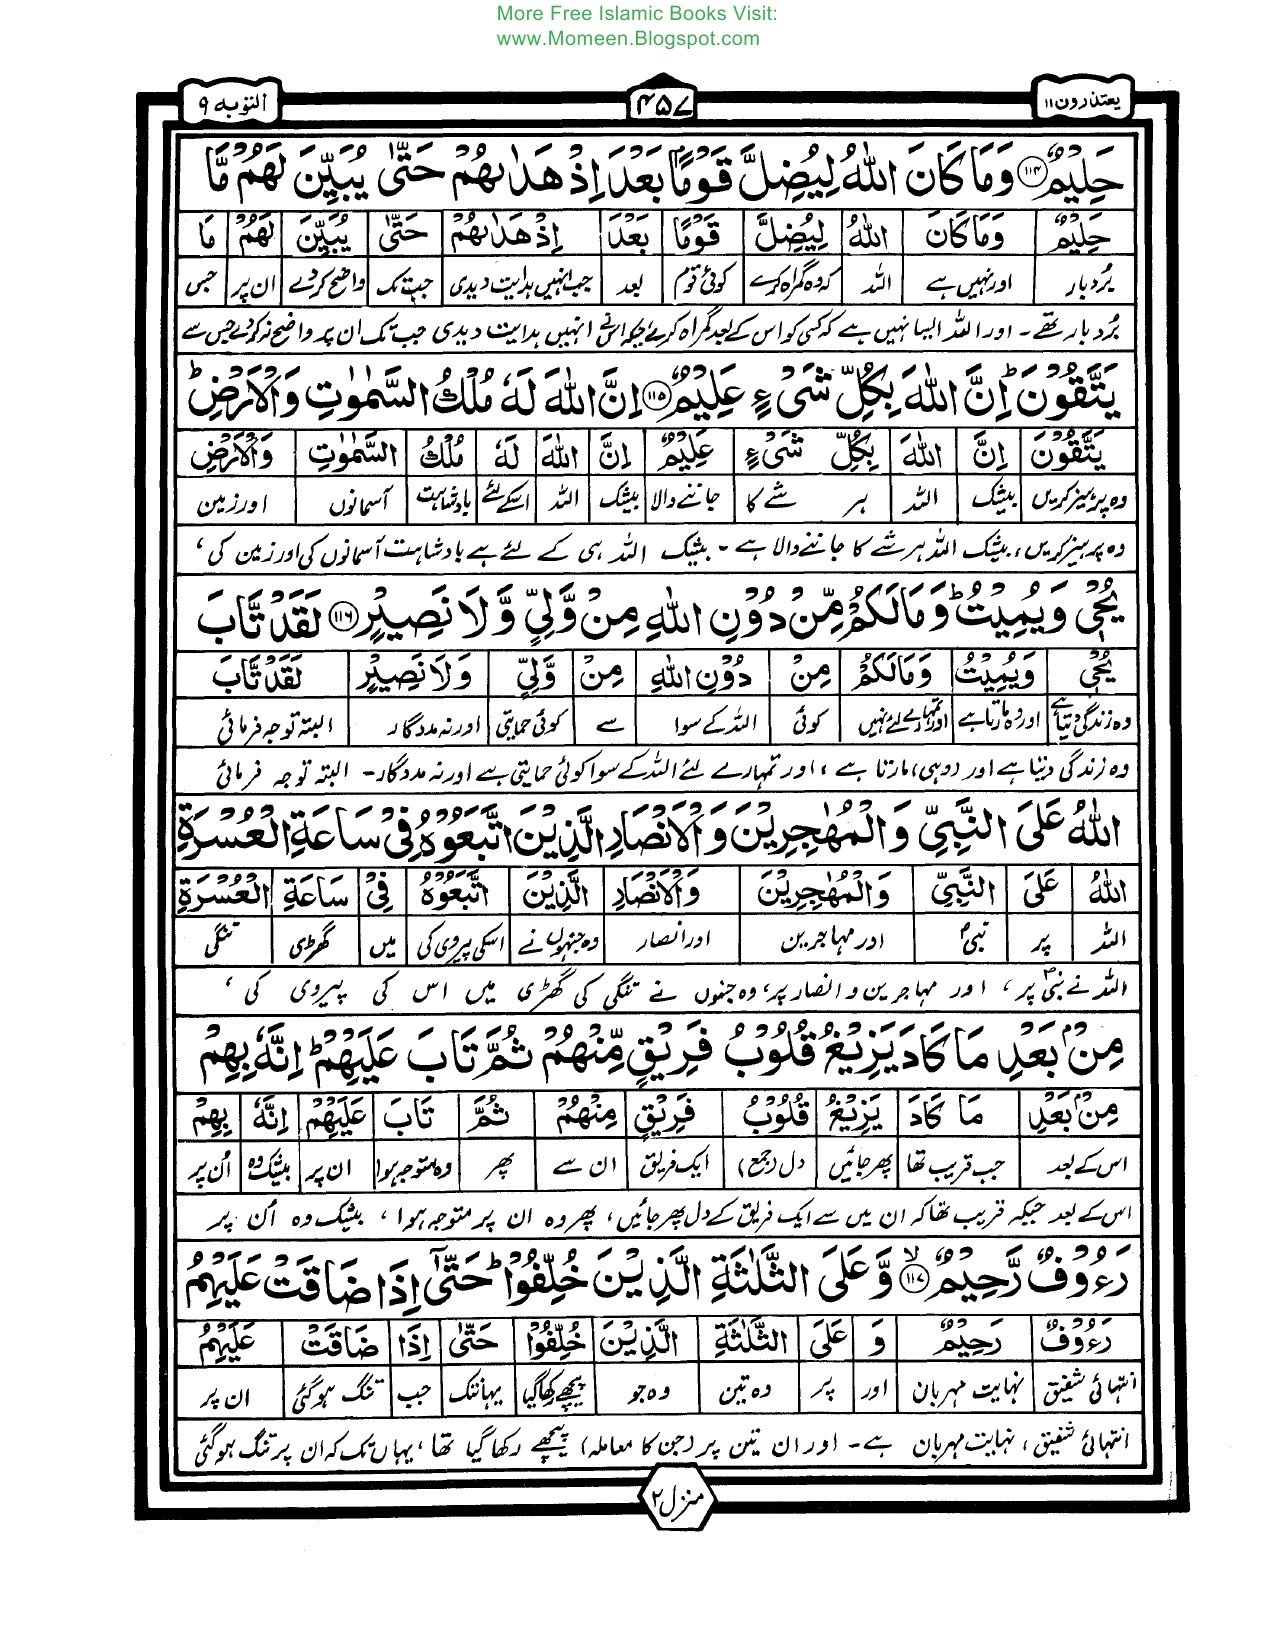 More Free Islamic Books Visit:
www.Momeen.Blogspot.com
یعتذرون ۱۱
۴۵۷
التوبہ ۹
حَلِيْمٌ ﴿۱۱۴﴾ وَمَا كَانَ اللّٰهُ لِيُضِلَّ قَوْمًۢا بَعْدَ اِذْ هَدٰىهُمْ حَتّٰى يُبَيِّنَ لَهُمْ مَّا
حَلِيْمٌ وَمَا كَانَ اللّٰهُ لِيُضِلَّ قَوْمًا بَعْدَ اِذْ هَدٰىهُمْ حَتّٰى يُبَيِّنَ لَهُمْ مَا
بُردبار اور نہیں ہے اللہ کہ وہ گمراہ کرے کوئی قوم بعد جب انہیں ہدایت دیدی جب تک واضح کردے ان پر جس
بُردبار تھے۔ اور اللہ ایسا نہیں ہے کہ کسی کو اس کے بعد گمراہ کرے جبکہ اس نے انہیں ہدایت دیدی جب تک ان پر واضح نہ کردے جس سے
يَتَّقُوْنَ ؕ اِنَّ اللّٰهَ بِكُلِّ شَىْءٍ عَلِيْمٌ ﴿۱۱۵﴾ اِنَّ اللّٰهَ لَهٗ مُلْكُ السَّمٰوٰتِ وَالْاَرْضِ ؕ
يَتَّقُوْنَ اِنَّ اللّٰهَ بِكُلِّ شَىْءٍ عَلِيْمٌ اِنَّ اللّٰهَ لَهٗ مُلْكُ السَّمٰوٰتِ وَالْاَرْضِ
وہ پرہیز کریں بیشک اللہ ہر شے کا جاننے والا بیشک اللہ اسکے لئے بادشاہت آسمانوں اور زمین
وہ پرہیز کریں، بیشک اللہ ہر شے کا جاننے والا ہے۔ بیشک اللہ ہی کے لئے ہے بادشاہت آسمانوں کی اور زمین کی،
يُحْيٖ وَيُمِيْتُ ؕ وَمَا لَكُمْ مِّنْ دُوْنِ اللّٰهِ مِنْ وَّلِيٍّ وَّلَا نَصِيْرٍ ﴿۱۱۶﴾ لَقَدْ تَّابَ
يُحْيٖ وَيُمِيْتُ وَمَا لَكُمْ مِنْ دُوْنِ اللّٰهِ مِنْ وَّلِيٍّ وَلَا نَصِيْرٍ لَقَدْ تَابَ
وہ زندگی دیتا ہے اور وہ مارتا ہے اور تمہارے لئے نہیں کوئی اللہ کے سوا سے کوئی حمایتی اور نہ مددگار البتہ توجہ فرمائی
وہ زندگی دیتا ہے اور (وہی) مارتا ہے، اور تمہارے لئے اللہ کے سوا کوئی حمایتی ہے اور نہ مددگار۔ البتہ توجہ فرمائی
اللّٰهُ عَلَى النَّبِيِّ وَالْمُهٰجِرِيْنَ وَالْاَنْصَارِ الَّذِيْنَ اتَّبَعُوْهُ فِىْ سَاعَةِ الْعُسْرَةِ
اللّٰهُ عَلَى النَّبِيِّ وَالْمُهٰجِرِيْنَ وَالْاَنْصَارِ الَّذِيْنَ اتَّبَعُوْهُ فِىْ سَاعَةِ الْعُسْرَةِ
اللہ پر نبیؐ اور مہاجرین اور انصار وہ جنہوں نے اسکی پیروی کی میں گھڑی تنگی
اللہ نے نبیؐ پر، اور مہاجرین و انصار پر، وہ جنہوں نے تنگی کی گھڑی میں اس کی پیروی کی،
مِنْۢ بَعْدِ مَا كَادَ يَزِيْغُ قُلُوْبُ فَرِيْقٍ مِّنْهُمْ ثُمَّ تَابَ عَلَيْهِمْ ؕ اِنَّهٗ بِهِمْ
مِنْۢ بَعْدِ مَا كَادَ يَزِيْغُ قُلُوْبُ فَرِيْقٍ مِنْهُمْ ثُمَّ تَابَ عَلَيْهِمْ اِنَّهٗ بِهِمْ
اس کے بعد جب قریب تھا پھر جائیں دل (جمع) ایک فریق ان سے پھر وہ متوجہ ہوا ان پر بیشک وہ اُن پر
اس کے بعد جبکہ قریب تھا کہ ان میں سے ایک فریق کے دل پھر جائیں، پھر وہ ان پر متوجہ ہوا، بیشک وہ اُن پر
رَءُوْفٌ رَّحِيْمٌ ﴿۱۱۷﴾ۙ وَّعَلَى الثَّلٰثَةِ الَّذِيْنَ خُلِّفُوْا ؕ حَتّٰٓى اِذَا ضَاقَتْ عَلَيْهِمُ
رَءُوْفٌ رَحِيْمٌ وَ عَلَى الثَّلٰثَةِ الَّذِيْنَ خُلِّفُوْا حَتّٰى اِذَا ضَاقَتْ عَلَيْهِمُ
انتہائی شفیق نہایت مہربان اور پر وہ تین وہ جو پیچھے رکھا گیا یہانتک جب تنگ ہو گئی ان پر
انتہائی شفیق، نہایت مہربان ہے۔ اور ان تین پر (جن کا معاملہ) پیچھے رکھا گیا تھا، یہاں تک کہ ان پر تنگ ہو گئی
منزل ۲